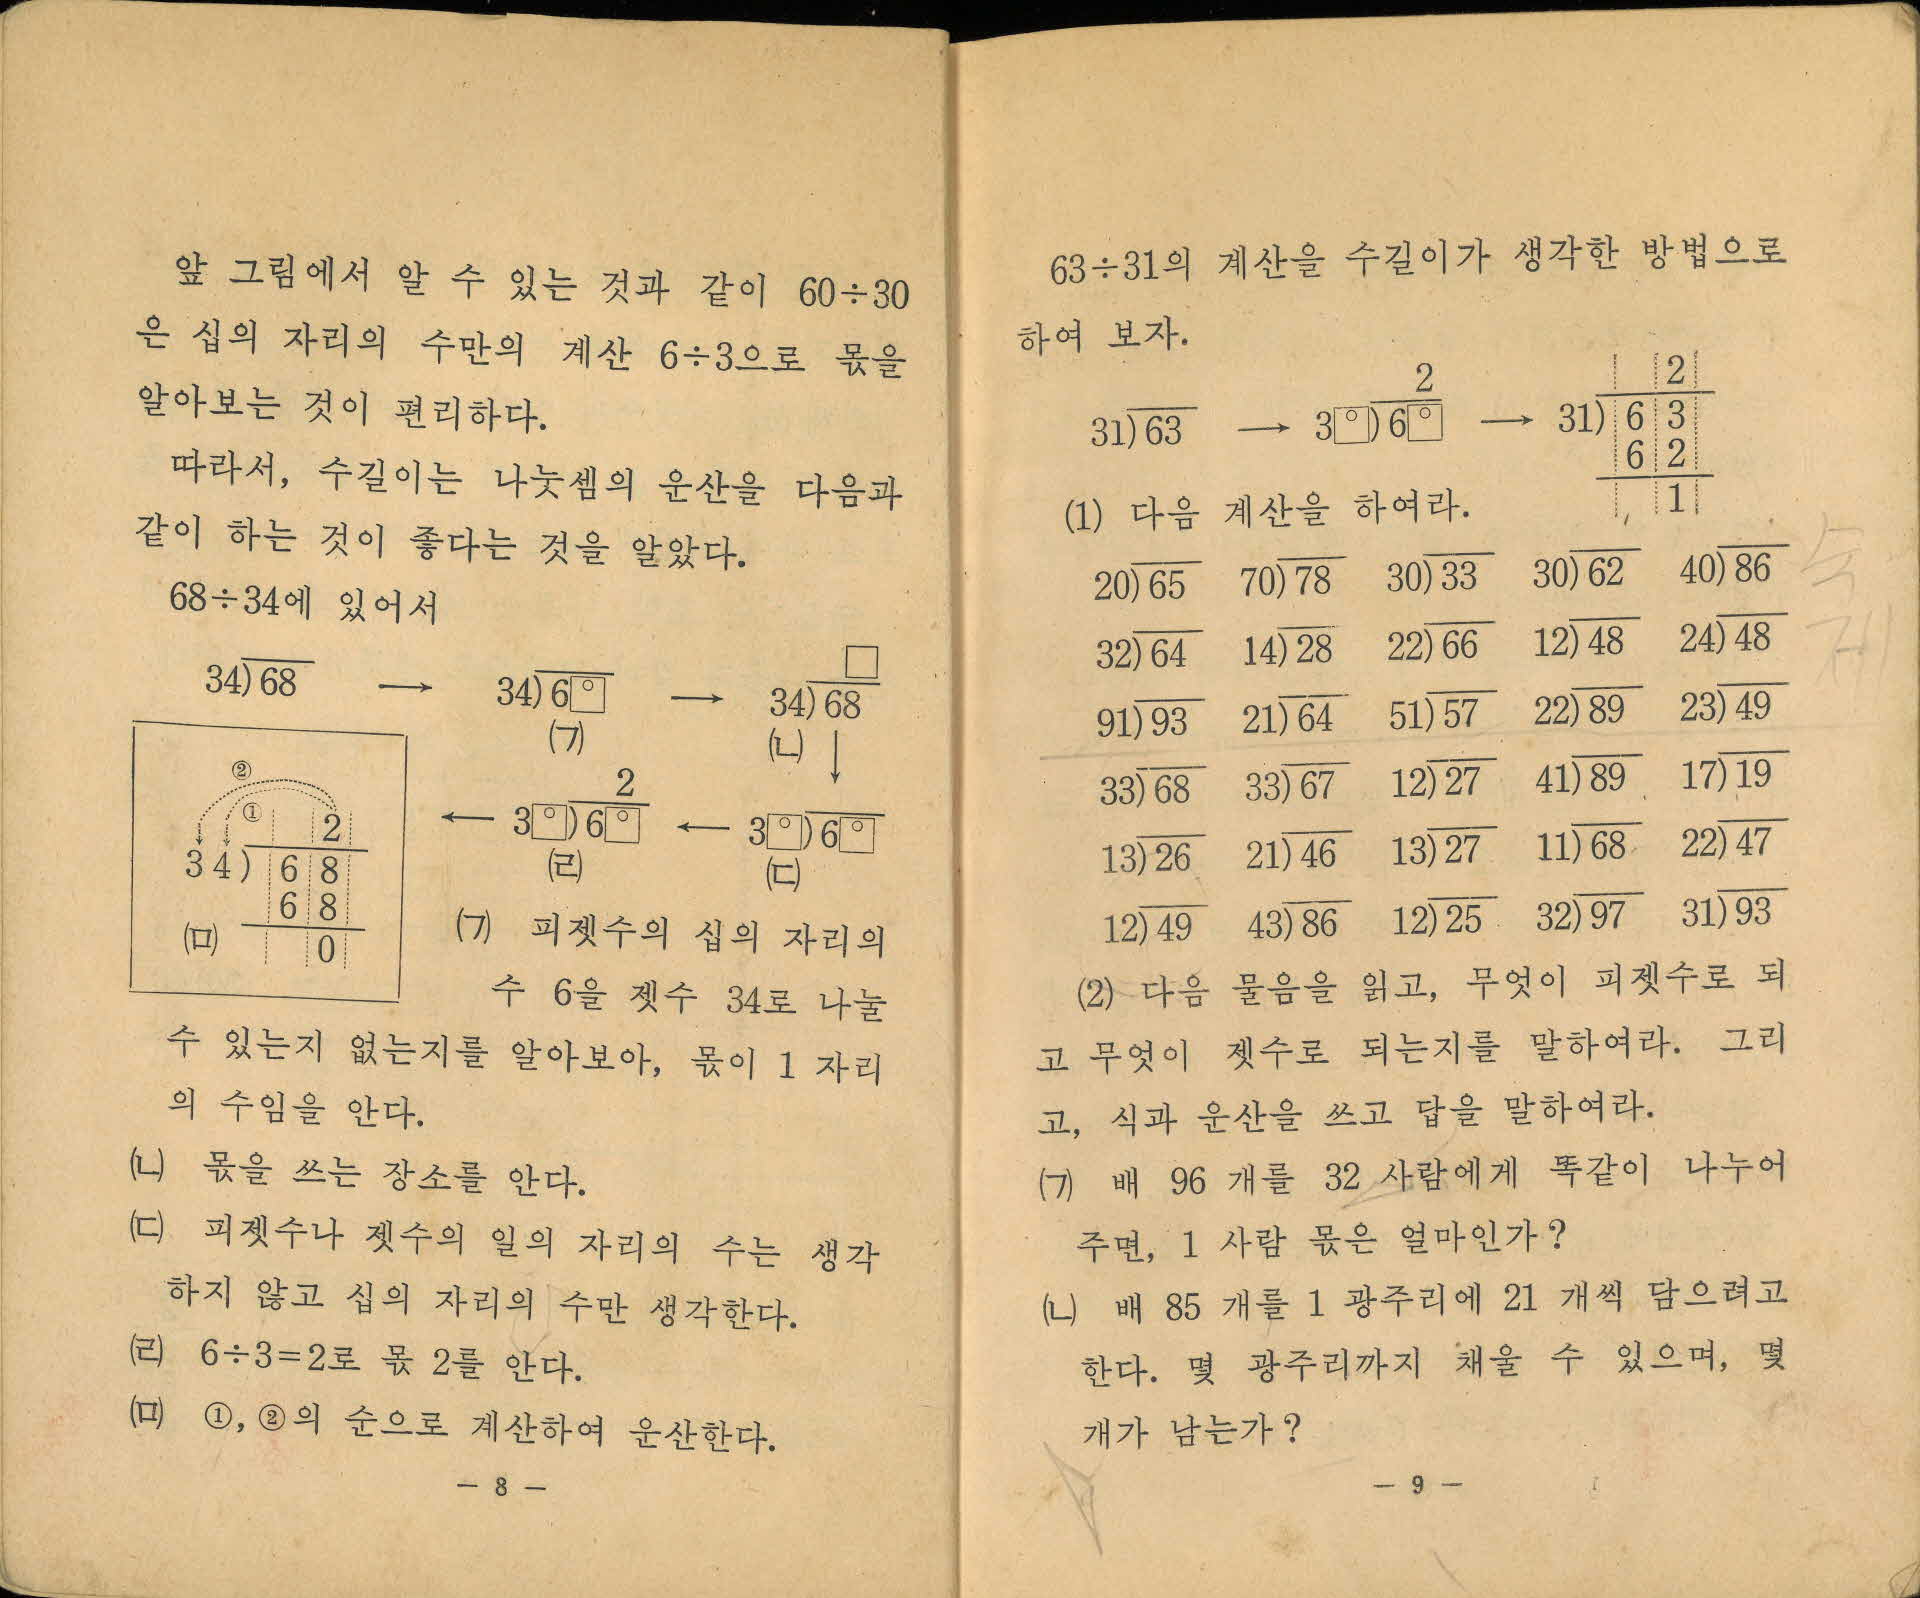 앞 그림에서 알 수 있는 것과 같이 60÷30
은 십의 자리의 수만의 계산 6÷3으로 몫을
알아보는 것이 편리하다.
따라서, 수길이는 나눗셈의 운산을 다음과
같이 하는 것이 좋다는 것을 알았다.
68÷34에 있어서
34)68 → 34)6□ → 34)68
(ㄱ) (ㄴ) ↓
2
← 3□)6□ ← 3□)6□
(ㄹ) (ㄷ)
② ①
2
34)68
68
(ㅁ) 0
(ㄱ) 피젯수의 십의 자리의
수 6을 젯수 34로 나눌
수 있는지 없는지를 알아보아, 몫이 1 자리
의 수임을 안다.
(ㄴ) 몫을 쓰는 장소를 안다.
(ㄷ) 피젯수나 젯수의 일의 자리의 수는 생각
하지 않고 십의 자리의 수만 생각한다.
(ㄹ) 6÷3=2로 몫 2를 안다.
(ㅁ) ①, ②의 순으로 계산하여 운산한다.
— 8 —
63÷31의 계산을 수길이가 생각한 방법으로
하여 보자.
2 2
31)63 → 3□)6□ → 31)63
62
1
(1) 다음 계산을 하여라.
20)65 70)78 30)33 30)62 40)86
32)64 14)28 22)66 12)48 24)48
91)93 21)64 51)57 22)89 23)49
33)68 33)67 12)27 41)89 17)19
13)26 21)46 13)27 11)68 22)47
12)49 43)86 12)25 32)97 31)93
숙제
(2) 다음 물음을 읽고, 무엇이 피젯수로 되
고 무엇이 젯수로 되는지를 말하여라. 그리
고, 식과 운산을 쓰고 답을 말하여라.
(ㄱ) 배 96 개를 32 사람에게 똑같이 나누어
주면, 1 사람 몫은 얼마인가?
(ㄴ) 배 85 개를 1 광주리에 21 개씩 담으려고
한다. 몇 광주리까지 채울 수 있으며, 몇
개가 남는가?
— 9 —